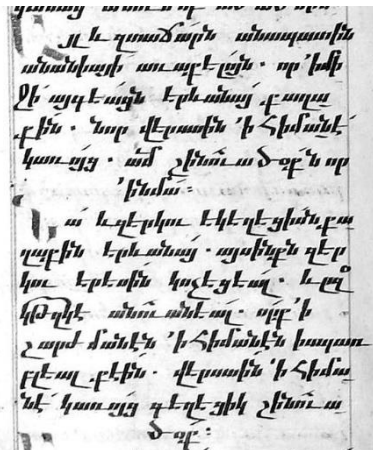 յլ և զտաճարն անապատին
անանիայի առաքելոյն. որ 'ի մի
ջի այգեացն երևանայ քաղա
քին. նոր վերստին 'ի հիմանէ
կառոյց. ամ շինուածօքն որ
'ինմա:
զերկու եկեղեցիսն քա
ղաքին երևանայ. այսինքն զեր
կու երեսին կոչեցեալ.
անուանեալ. որք 'ի
շարժմանէն 'ի հիմանէն խապառ
բլեալ էին. վերստին 'ի հիմա
նէ կառոյց գեղեցիկ շինուա
ծօք: